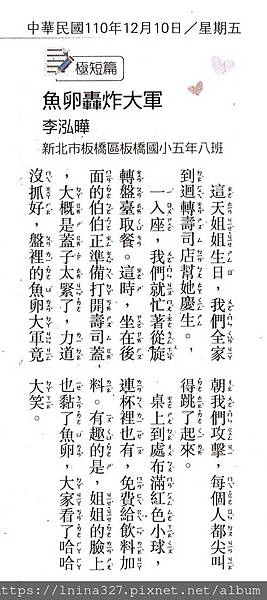 中華民國110年12月10日／星期五
極短篇
魚卵轟炸大軍
李泓曄
新北市板橋區板橋國小五年八班
這天姐姐生日，我們全家
到迴轉壽司店幫她慶生。
一入座，我們就忙著從旋
轉盤臺取餐。這時，坐在後
面的伯伯正準備打開壽司蓋
，大概是蓋子太緊了，力道
沒抓好，盤裡的魚卵大軍竟
朝我們攻擊，每個人都尖叫
得跳了起來。
桌上到處布滿紅色小球，
連杯裡也有，免費給飲料加
料。有趣的是，姐姐的臉上
也黏了魚卵，大家看了哈哈
大笑。
https://1nina327.pixnet.net/album